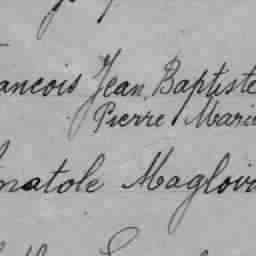 ancois Jean Baptiste
Pierre Marie
natole Magloir